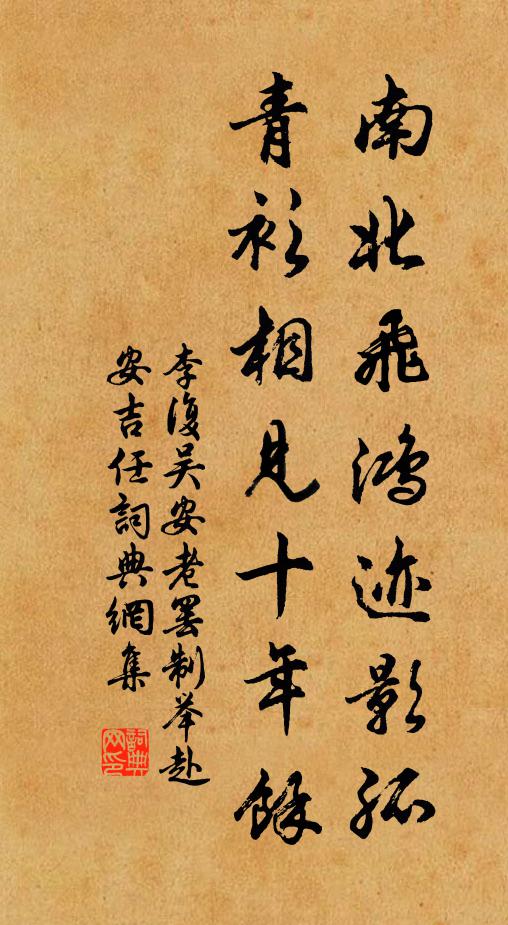 南北飛鴻迹影孤
青衫相見十年餘
李復吴安老罢制举赴
安吉任詞典網集
詞典网印